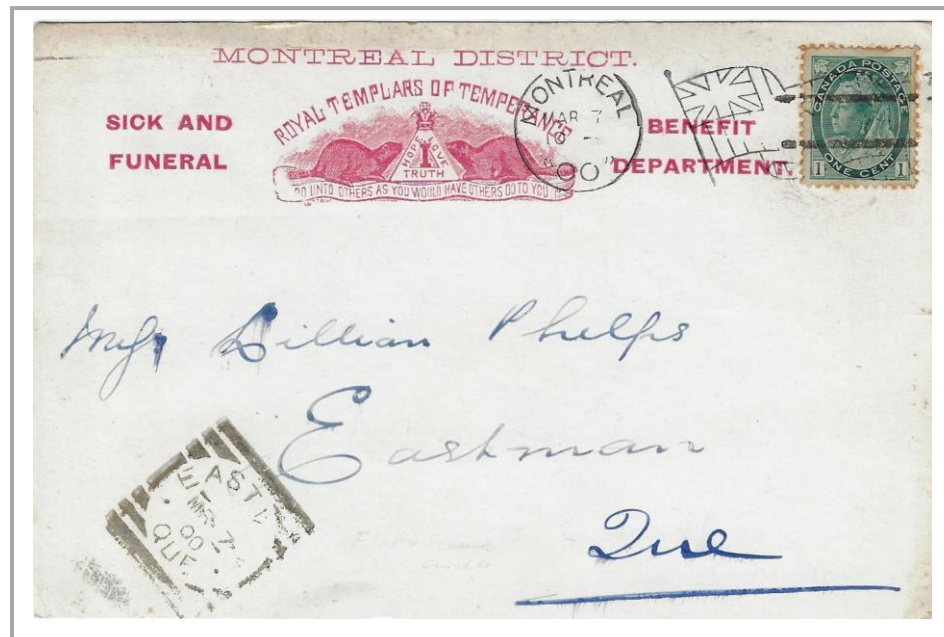 MONTREAL DISTRICT.
ROYAL TEMPLARS OF TEMPERANCE
SICK AND FUNERAL
HOPE LOVE
1
TRUTH
DO UNTO OTHERS AS YOU WOULD HAVE OTHERS DO TO YOU
BENEFIT DEPARTMENT.
MONTREAL
MAR 7
"00"
CANADA POSTAGE
1 ONE CENT 1
Miss Lillian Phelps
Eastman
Que
EAST
MR 7
00
QUE.